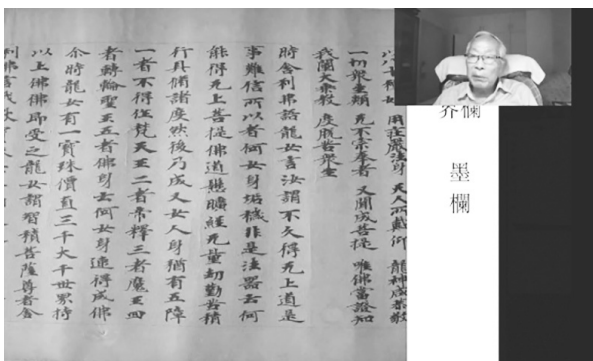 界欄
墨欄
用莊嚴法身 天人所戴仰 龍神咸恭敬
一切衆生類 无不宗奉者 又聞成菩提 唯佛當證知
我闡大乘教 度脫苦衆生
時舍利弗語龍女言汝謂不久得无上道是
事難信所以者何女身垢穢非是法器云何
能得无上菩提佛道懸曠經无量劫勤苦積
行具脩諸度然後乃成又女人身猶有五障
一者不得作梵天王二者帝釋三者魔王四
者轉輪聖王五者佛身云何女身速得成佛
尒時龍女有一寶珠價直三千大千世界持
以上佛佛即受之龍女謂智積菩薩尊者舍
利弗言我